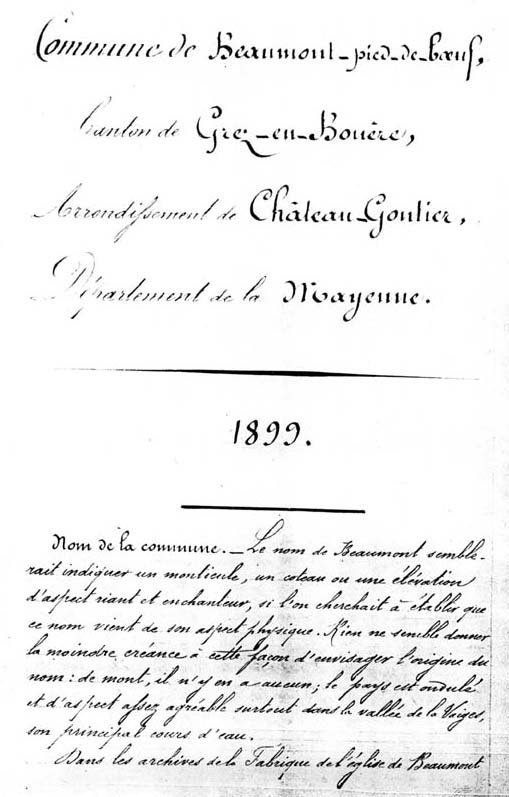 Commune de Beaumont-pied-de-bœuf,
Canton de Grez-en-Bouère,
Arrondissement de Château-Gontier,
Département de la Mayenne.
1899.
Nom de la commune. — Le nom de Beaumont semble-
rait indiquer un monticule, un coteau ou une élévation
d'aspect riant et enchanteur, si l'on cherchait à établir que
ce nom vient de son aspect physique. Rien ne semble donner
la moindre créance à cette façon d'envisager l'origine du
nom : de mont, il n'y en a aucun ; le pays est ondulé
et d'aspect assez agréable surtout dans la vallée de la Vaiges,
son principal cours d'eau.
Dans les archives de la Fabrique de l'église de Beaumont